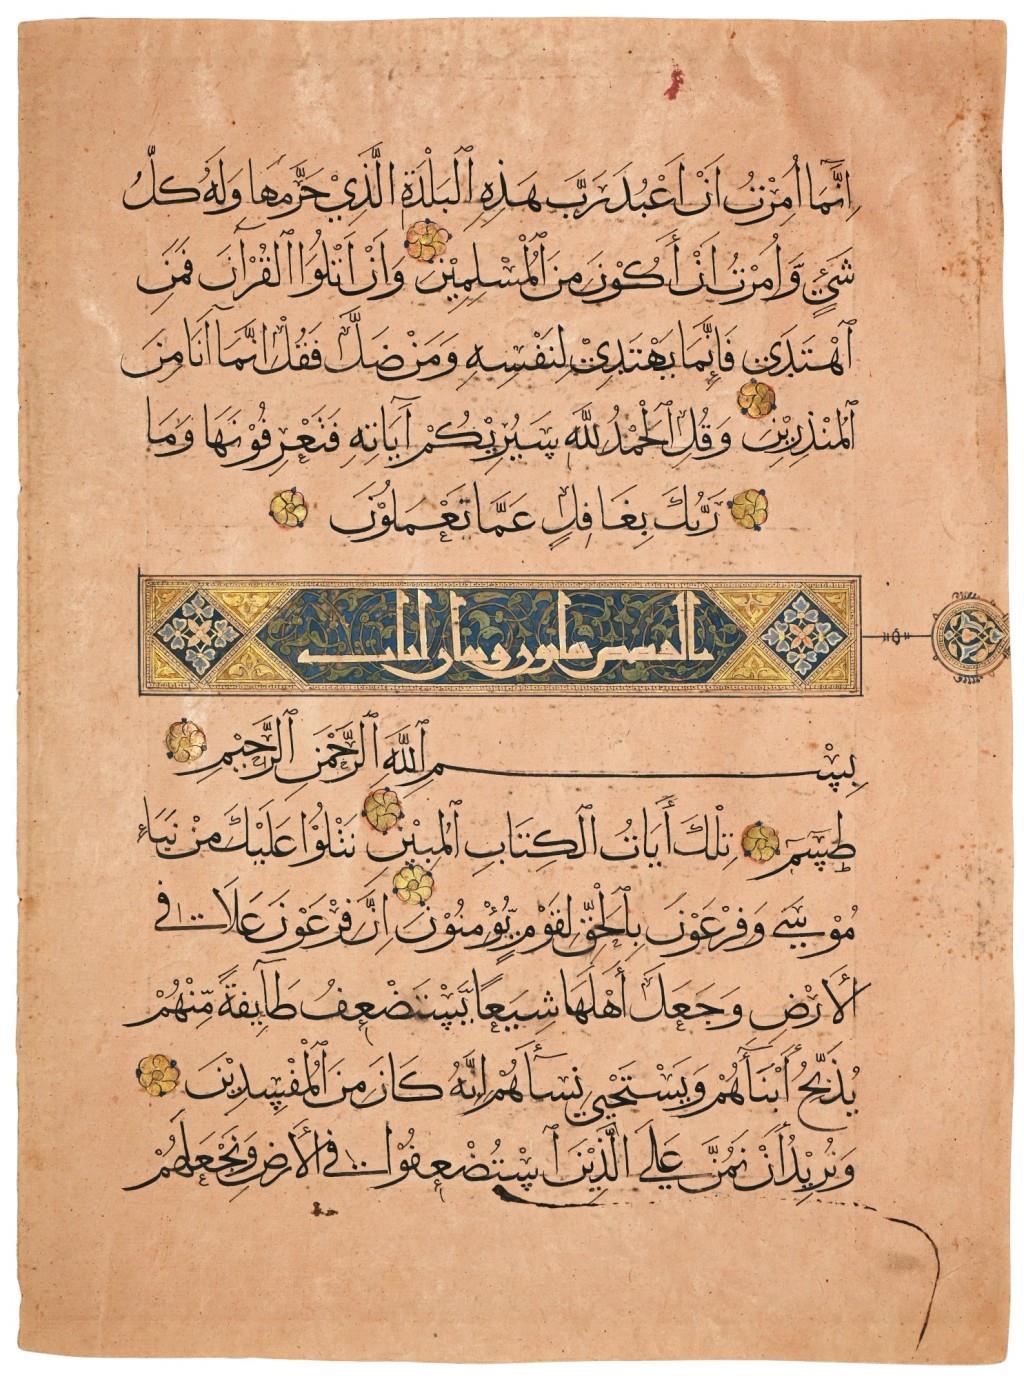 إِنَّمَا أُمِرْتُ أَنْ أَعْبُدَ رَبَّ هَذِهِ ٱلْبَلْدَةِ الَّذِي حَرَّمَهَا وَلَهُ كُلُّ
شَيْءٍ وَّأُمِرْتُ أَنْ أَكُوْنَ مِنَ ٱلْمُسْلِمِيْنَ وَأَنْ أَتْلُوَا ٱلْقُرْآنَ فَمَنِ
ٱهْتَدَى فَإِنَّمَا يَهْتَدِيْ لِنَفْسِهِ وَمَنْ ضَلَّ فَقُلْ إِنَّمَا أَنَا مِنَ
ٱلْمُنْذِرِيْنَ وَقُلِ ٱلْحَمْدُ لِلَّهِ سَيُرِيْكُمْ آيَاتِهِ فَتَعْرِفُوْنَهَا وَمَا
رَبُّكَ بِغَافِلٍ عَمَّا تَعْمَلُوْنَ
وثمانون آيات
بِسْمِ ٱللَّهِ ٱلرَّحْمَنِ ٱلرَّحِيْمِ
طسٓمٓ تِلْكَ أَيَاتُ ٱلْكِتَابِ ٱلْمُبِيْنِ نَتْلُوْا عَلَيْكَ مِنْ نَبَاءِ
مُوْسَى وَفِرْعَوْنَ بِٱلْحَقِّ لِقَوْمٍ يُّؤْمِنُوْنَ إِنَّ فِرْعَوْنَ عَلَا فِي
ٱلأَرْضِ وَجَعَلَ أَهْلَهَا شِيَعًا يَّسْتَضْعِفُ طَآيِفَةً مِّنْهُمْ
يُذَبِّحُ أَبْنَآَهُمْ وَيَسْتَحْيِي نِسَآَهُمْ إِنَّهُ كَانَ مِنَ ٱلْمُفْسِدِيْنَ
وَنُرِيْدُ أَنْ نَمُنَّ عَلَى الَّذِيْنَ ٱسْتُضْعِفُوْا فِي ٱلأَرْضِ وَنَجْعَلَهُمْ